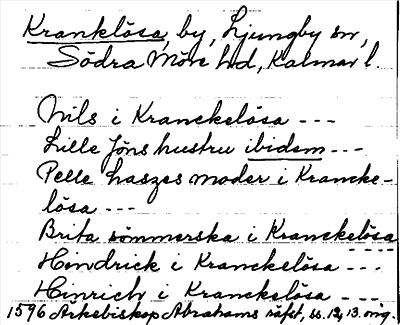 Kranklösa, by, Ljungby sn,
Södra Möre hd, Kalmar l.
Nils i Kranckelösa ---
Lille Jöns hustru ibidem ---
Pelle haszes moder i Krancke-
lösa ---
Brita sömmerska i Kranckelösa
Hindrick i Kranckelösa ---
Hinrich i Kranckelösa ---
1596 Ärkebiskop Abrahams räfst, ss. 12, 13. orig.